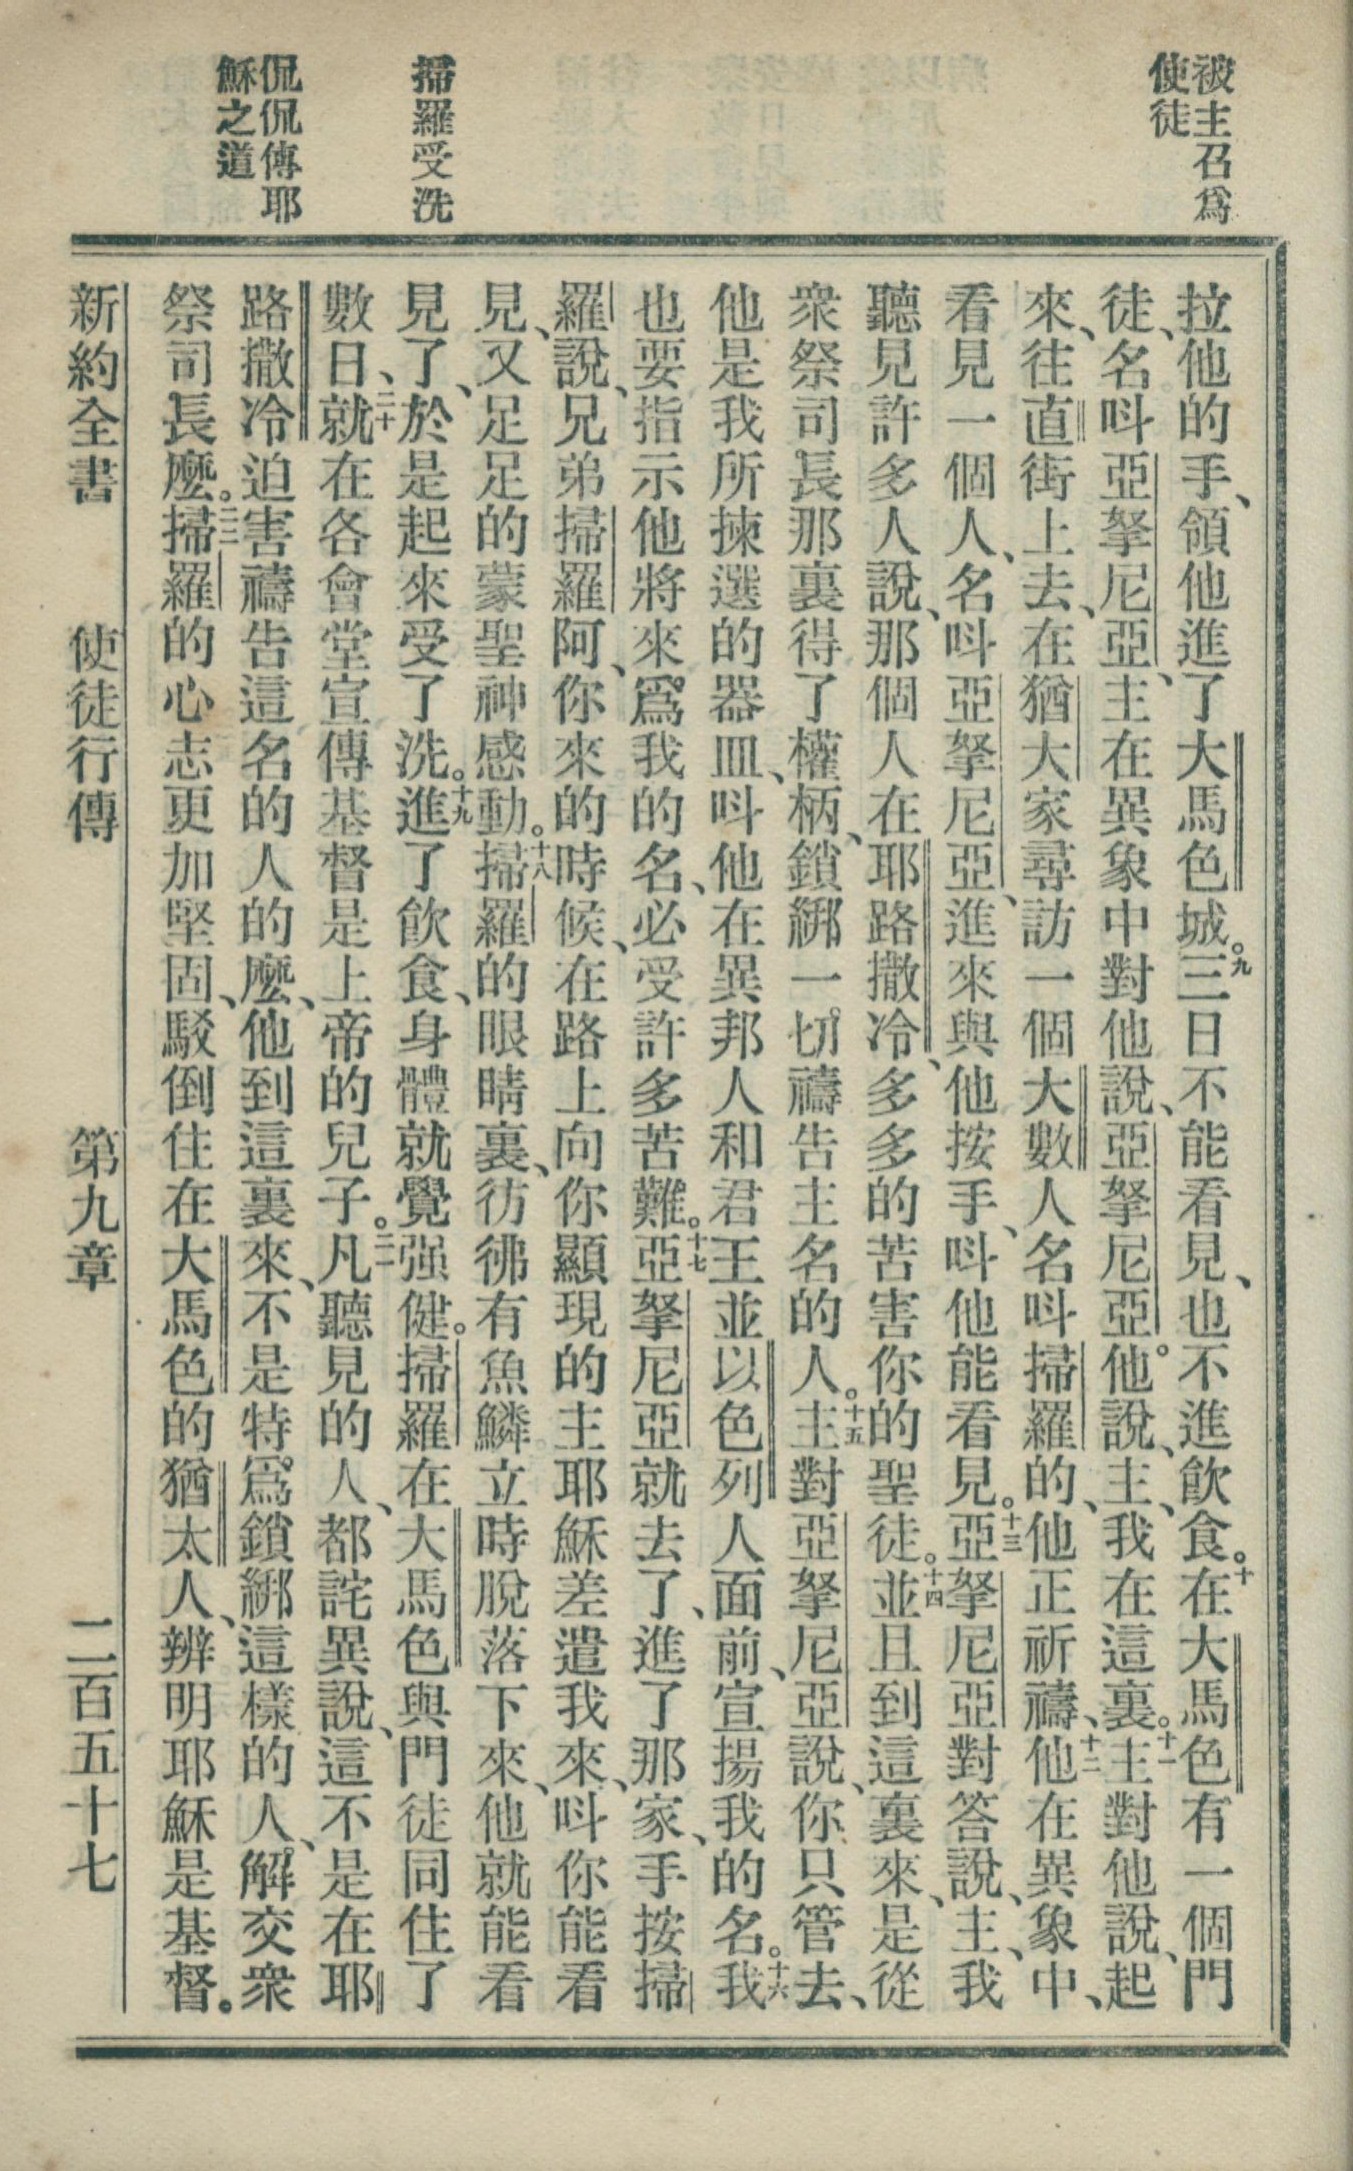 被主召爲
使徒
掃羅受洗
侃侃傳耶
穌之道
拉他的手、領他進了大馬色城。九三日不能看見、也不進飲食。十在大馬色有一個門
徒、名呌亞拏尼亞、主在異象中對他說、亞拏尼亞。他說、主、我在這裏。十一主對他說、起
來、往直街上去、在猶大家尋訪一個大數人名呌掃羅的、他正祈禱、十二他在異象中、
看見一個人、名呌亞拏尼亞、進來與他按手、呌他能看見。十三亞拏尼亞對答說、主、我
聽見許多人說、那個人在耶路撒冷、多多的苦害你的聖徒。十四並且到這裏來、是從
衆祭司長那裏得了權柄、鎖綁一切禱告主名的人。十五主對亞拏尼亞說、你只管去、
他是我所揀選的器皿、呌他在異邦人和君王並以色列人面前、宣揚我的名。十六我
也要指示他將來爲我的名、必受許多苦難。十七亞拏尼亞就去了、進了那家、手按掃
羅說、兄弟掃羅阿、你來的時候、在路上向你顯現的主耶穌差遣我來、呌你能看
見、又足足的蒙聖神感動。十八掃羅的眼睛裏、彷彿有魚鱗立時脫落下來、他就能看
見了、於是起來受了洗。十九進了飲食、身體就覺强健。掃羅在大馬色與門徒同住了
數日、二十就在各會堂宣傳基督是上帝的兒子。二一凡聽見的人、都詫異說、這不是在耶
路撒冷迫害禱告這名的人的麼、他到這裏來、不是特爲鎖綁這樣的人、解交衆
祭司長麼。二二掃羅的心志更加堅固、駁倒住在大馬色的猶太人、辨明耶穌是基督。
新約全書　使徒行傳　第九章　二百五十七